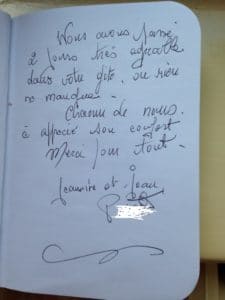 Nous avons passé
2 jours très agréable
dans votre gîte, ou rien
ne manque.
Chacun de nous
à apprécié son confort
Merci pour tout.
et Jean